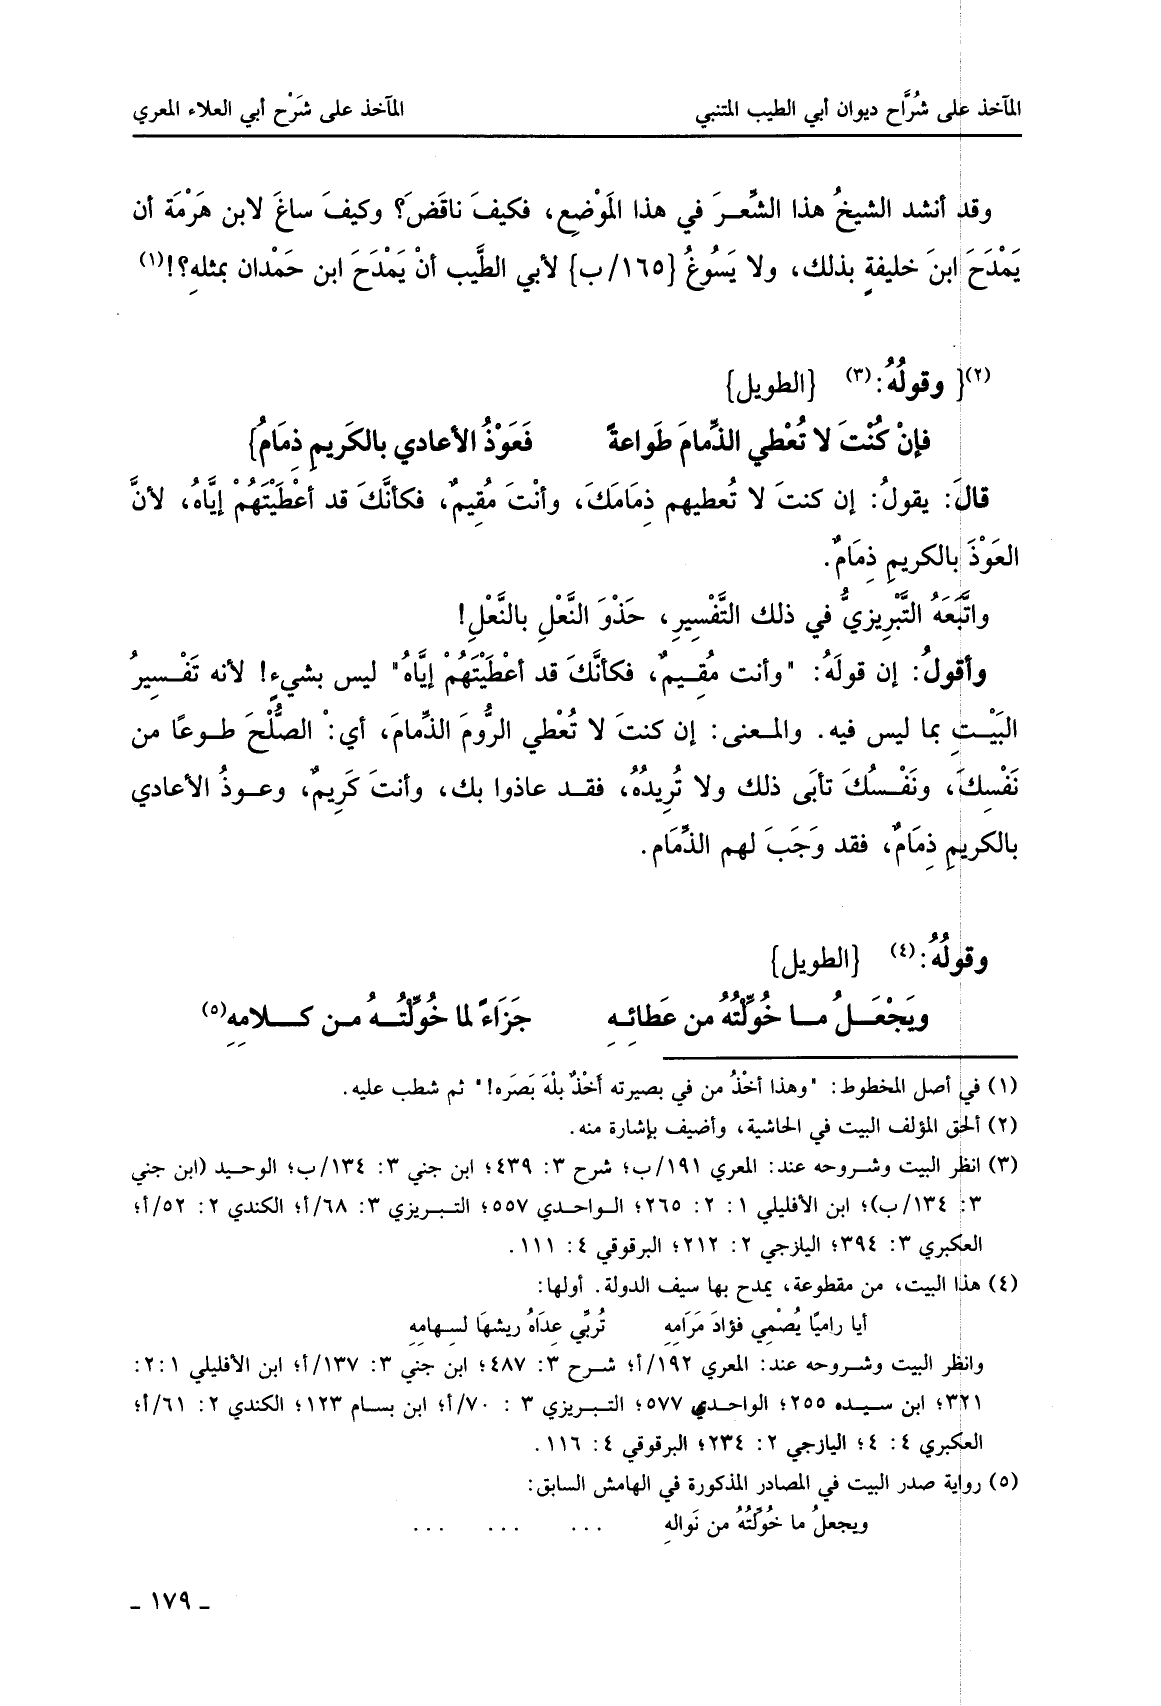 المآخذ على شُرَّاح ديوان أبي الطيب المتنبي المآخذ على شَرْح أبي العلاء المعري
وقد أنشد الشيخُ هذا الشِّعرَ في هذا المَوْضِعِ، فكيفَ ناقَضَ؟ وكيفَ ساغَ لابن هَرْمَة أن
يَمْدَحَ ابنَ خليفةٍ بذلك، ولا يَسُوغُ {١٦٥/ب} لأبي الطَّيب أنْ يَمْدَحَ ابن حَمْدان بمثلهِ؟!(١)
(٢){ وقولُهُ:(٣) {الطويل}
فإنْ كُنْتَ لا تُعْطي الذِّمامَ طَواعةً فَعَوْذُ الأعادي بالكَريمِ ذِمَامُ}
قالَ: يقولُ: إن كنتَ لا تُعطيهم ذِمَامَكَ، وأنْتَ مُقِيمٌ، فكأنَّكَ قد أعْطَيْتَهُمْ إيَّاهُ، لأنَّ
العَوْذَ بالكريمِ ذِمَامٌ.
واتَّبَعَهُ التَّبْرِيزيُّ في ذلك التَّفْسِيرِ، حَذْوَ النَّعْلِ بالنَّعْلِ!
وأقولُ: إن قولَهُ: "وأنت مُقِيمٌ، فكأنَّكَ قد أعْطَيْتَهُمْ إيَّاهُ" ليس بشيءٍ! لأنه تَفْسِيرُ
البَيْتِ بما ليس فيه. والمعنى: إن كنتَ لا تُعْطي الرُّومَ الذِّمامَ، أي: الصُّلْحَ طوعًا من
نَفْسِكَ، ونَفْسُكَ تأبَى ذلك ولا تُرِيدُهُ، فقد عاذوا بك، وأنتَ كَرِيمٌ، وعوذُ الأعادي
بالكريمِ ذِمَامٌ، فقد وَجَبَ لهم الذِّمَام.
وقولُهُ:(٤) {الطويل}
ويَجْعَلُ ما خُوِّلْتُهُ من عَطائِهِ جَزَاءً لما خُوِّلْتُهُ من كلامِهِ(٥)
(١) في أصل المخطوط: "وهذا أخْذُ من في بصيرته أَخْذٌ بلْهَ بَصَره!" ثم شطب عليه.
(٢) ألحق المؤلف البيت في الحاشية، وأضيف بإشارة منه.
(٣) انظر البيت وشروحه عند: المعري ١٩١/ب؛ شرح ٣: ٤٣٩؛ ابن جني ٣: ١٣٤/ب؛ الوحيد (ابن جني
٣: ١٣٤/ب)؛ ابن الأفليلي ١: ٢: ٢٦٥؛ الواحدي ٥٥٧؛ التبريزي ٣: ٦٨/أ؛ الكندي ٢: ٥٢/أ؛
العكبري ٣: ٣٩٤؛ اليازجي ٢: ٢١٢؛ البرقوقي ٤: ١١١.
(٤) هذا البيت، من مقطوعة، يمدح بها سيف الدولة. أولها:
أيا راميًا يُصْمِي فؤادَ مَرَامِهِ تُربِّي عِدَاهُ ريشهَا لسهامِهِ
وانظر البيت وشروحه عند: المعري ١٩٢/أ؛ شرح ٣: ٤٨٧؛ ابن جني ٣: ١٣٧/أ؛ ابن الأفليلي ١:٢:
٣٢١؛ ابن سيده ٢٥٥؛ الواحدي ٥٧٧؛ التبريزي ٣: ٧٠/أ؛ ابن بسام ١٢٣؛ الكندي ٢: ٦١/أ؛
العكبري ٤: ٤؛ اليازجي ٢: ٢٣٤؛ البرقوقي ٤: ١١٦.
(٥) رواية صدر البيت في المصادر المذكورة في الهامش السابق:
ويجعلُ ما خُوِّلْتُهُ من نَوالهِ ... ... ...
ـ ١٧٩ ـ